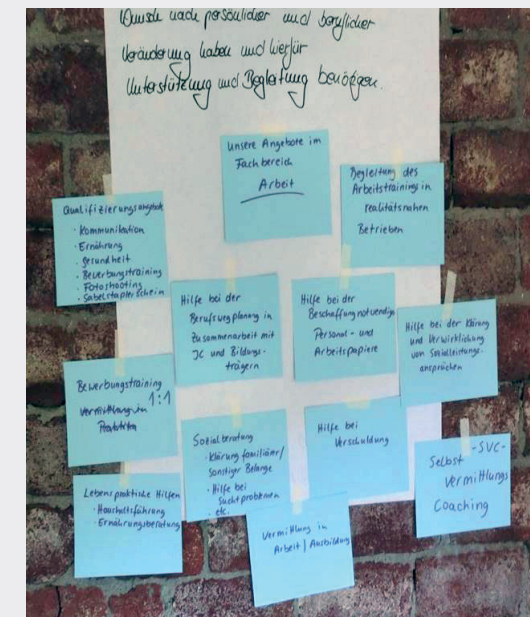 Wunsch nach persönlicher und beruflicher
Veränderung haben und hierfür
Unterstützung und Begleitung benötigen.
unsere Angebote im
Fachbereich
Arbeit
Begleitung des
Arbeitstrainings in
realitätsnahen
Betrieben
Qualifizierungsangebote
· Kommunikation
· Ernährung
· Gesundheit
· Bewerbungstraining
· Fotoshooting
· Gabelstaplerschein
Hilfe bei der
Berufswegplanung in
Zusammenarbeit mit
JC und Bildungs-
trägern
Hilfe bei der
Beschaffung notwendige
Personal- und
Arbeitspapiere
Hilfe bei der Klärung
und Verwirklichung
von Sozialleistungs-
ansprüchen
Bewerbungstraining
1:1
Vermittlung in
Sozialberatung
· Klärung familiärer/
sonstiger Belange
· Hilfe bei
Suchtproblemen
· etc.
Hilfe bei
Verschuldung
-SVC-
Selbst
Vermittlungs
Coaching
Lebenspraktische Hilfen
· Haushaltsführung
· Ernährungsberatung
Vermittlung in
Arbeit | Ausbildung